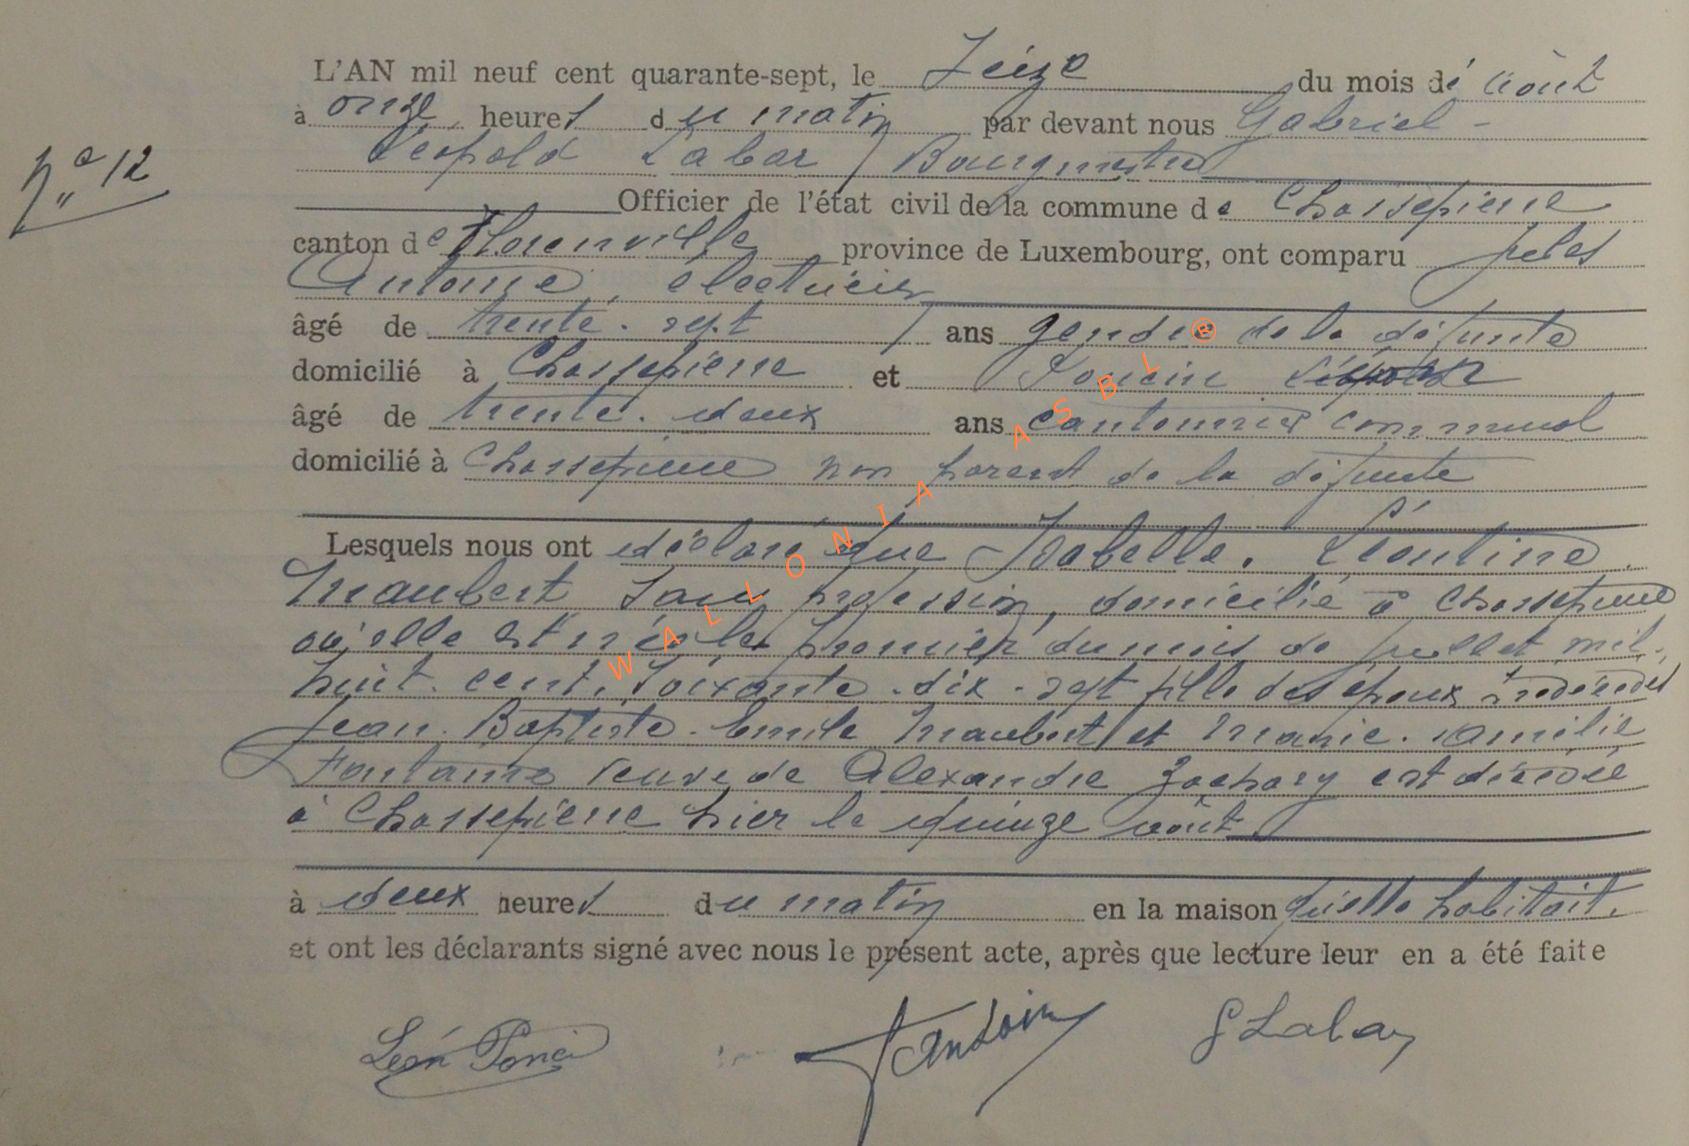 L'AN mil neuf cent quarante-sept, le Seize du mois de août
à onze heures du matin par devant nous Gabriel -
Nº 12
Léopold Labar, Bourgmestre
Officier de l'état civil de la commune de Chassepierre
canton de Florenville province de Luxembourg, ont comparu Jules
Antoine, électricien
âgé de trente-sept ans gendre de la défunte
domicilié à Chassepierre et Poncin
âgé de trente-deux ans cantonnier communal
domicilié à Chassepierre non parent de la défunte
Lesquels nous ont déclaré que Isabelle. Léontine
Maubert sans profession, domicilié à Chassepierre
où elle est née le premier du mois de juillet mil-
huit-cent-soixante-dix-sept fille des époux décédés
Jean-Baptiste-Emile Maubert et Marie-Amélie
Fontaine veuve de Alexandre Zachary est décédée
à Chassepierre hier le quinze août
à deux heures du matin en la maison qu'elle habitait.
et ont les déclarants signé avec nous le présent acte, après que lecture leur en a été faite
Léon Poncin J Antoine G Labar
WALLONIA ASBL ®